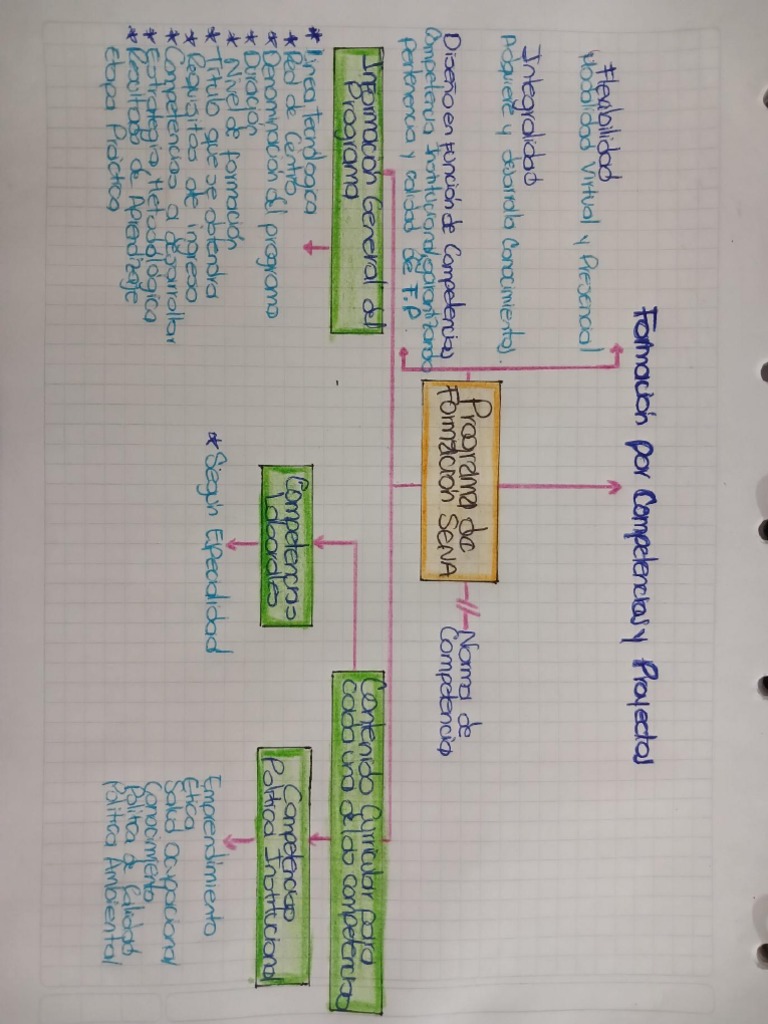 Formación por Competencias y Proyectos
Flexibilidad
Modalidad Virtual y Presencial
Integralidad
Adquiere y desarrolla Conocimientos.
Diseño en Función de Competencias
Competencia Institucional, garantizando
pertenencia y calidad de F.P.
Programa de
Formación SENA
Norma de
Competencia
Información General del
Programa
* Línea Tecnológica
* Red de Centro
* Denominación del programa
* Duración
* Nivel de formación
* Título que se obtendrá
* Requisitos de ingreso
* Competencias a desarrollar
* Estrategia Metodológica
* Resultado de Aprendizaje
Etapa Práctica
Contenido Curricular para
cada una de las competencias
Competencias
laborales
* Según Especialidad
Competencias
Política Institucional
Emprendimiento
Ética
Salud ocupacional
Conocimiento
Política de Calidad
Política Ambiental